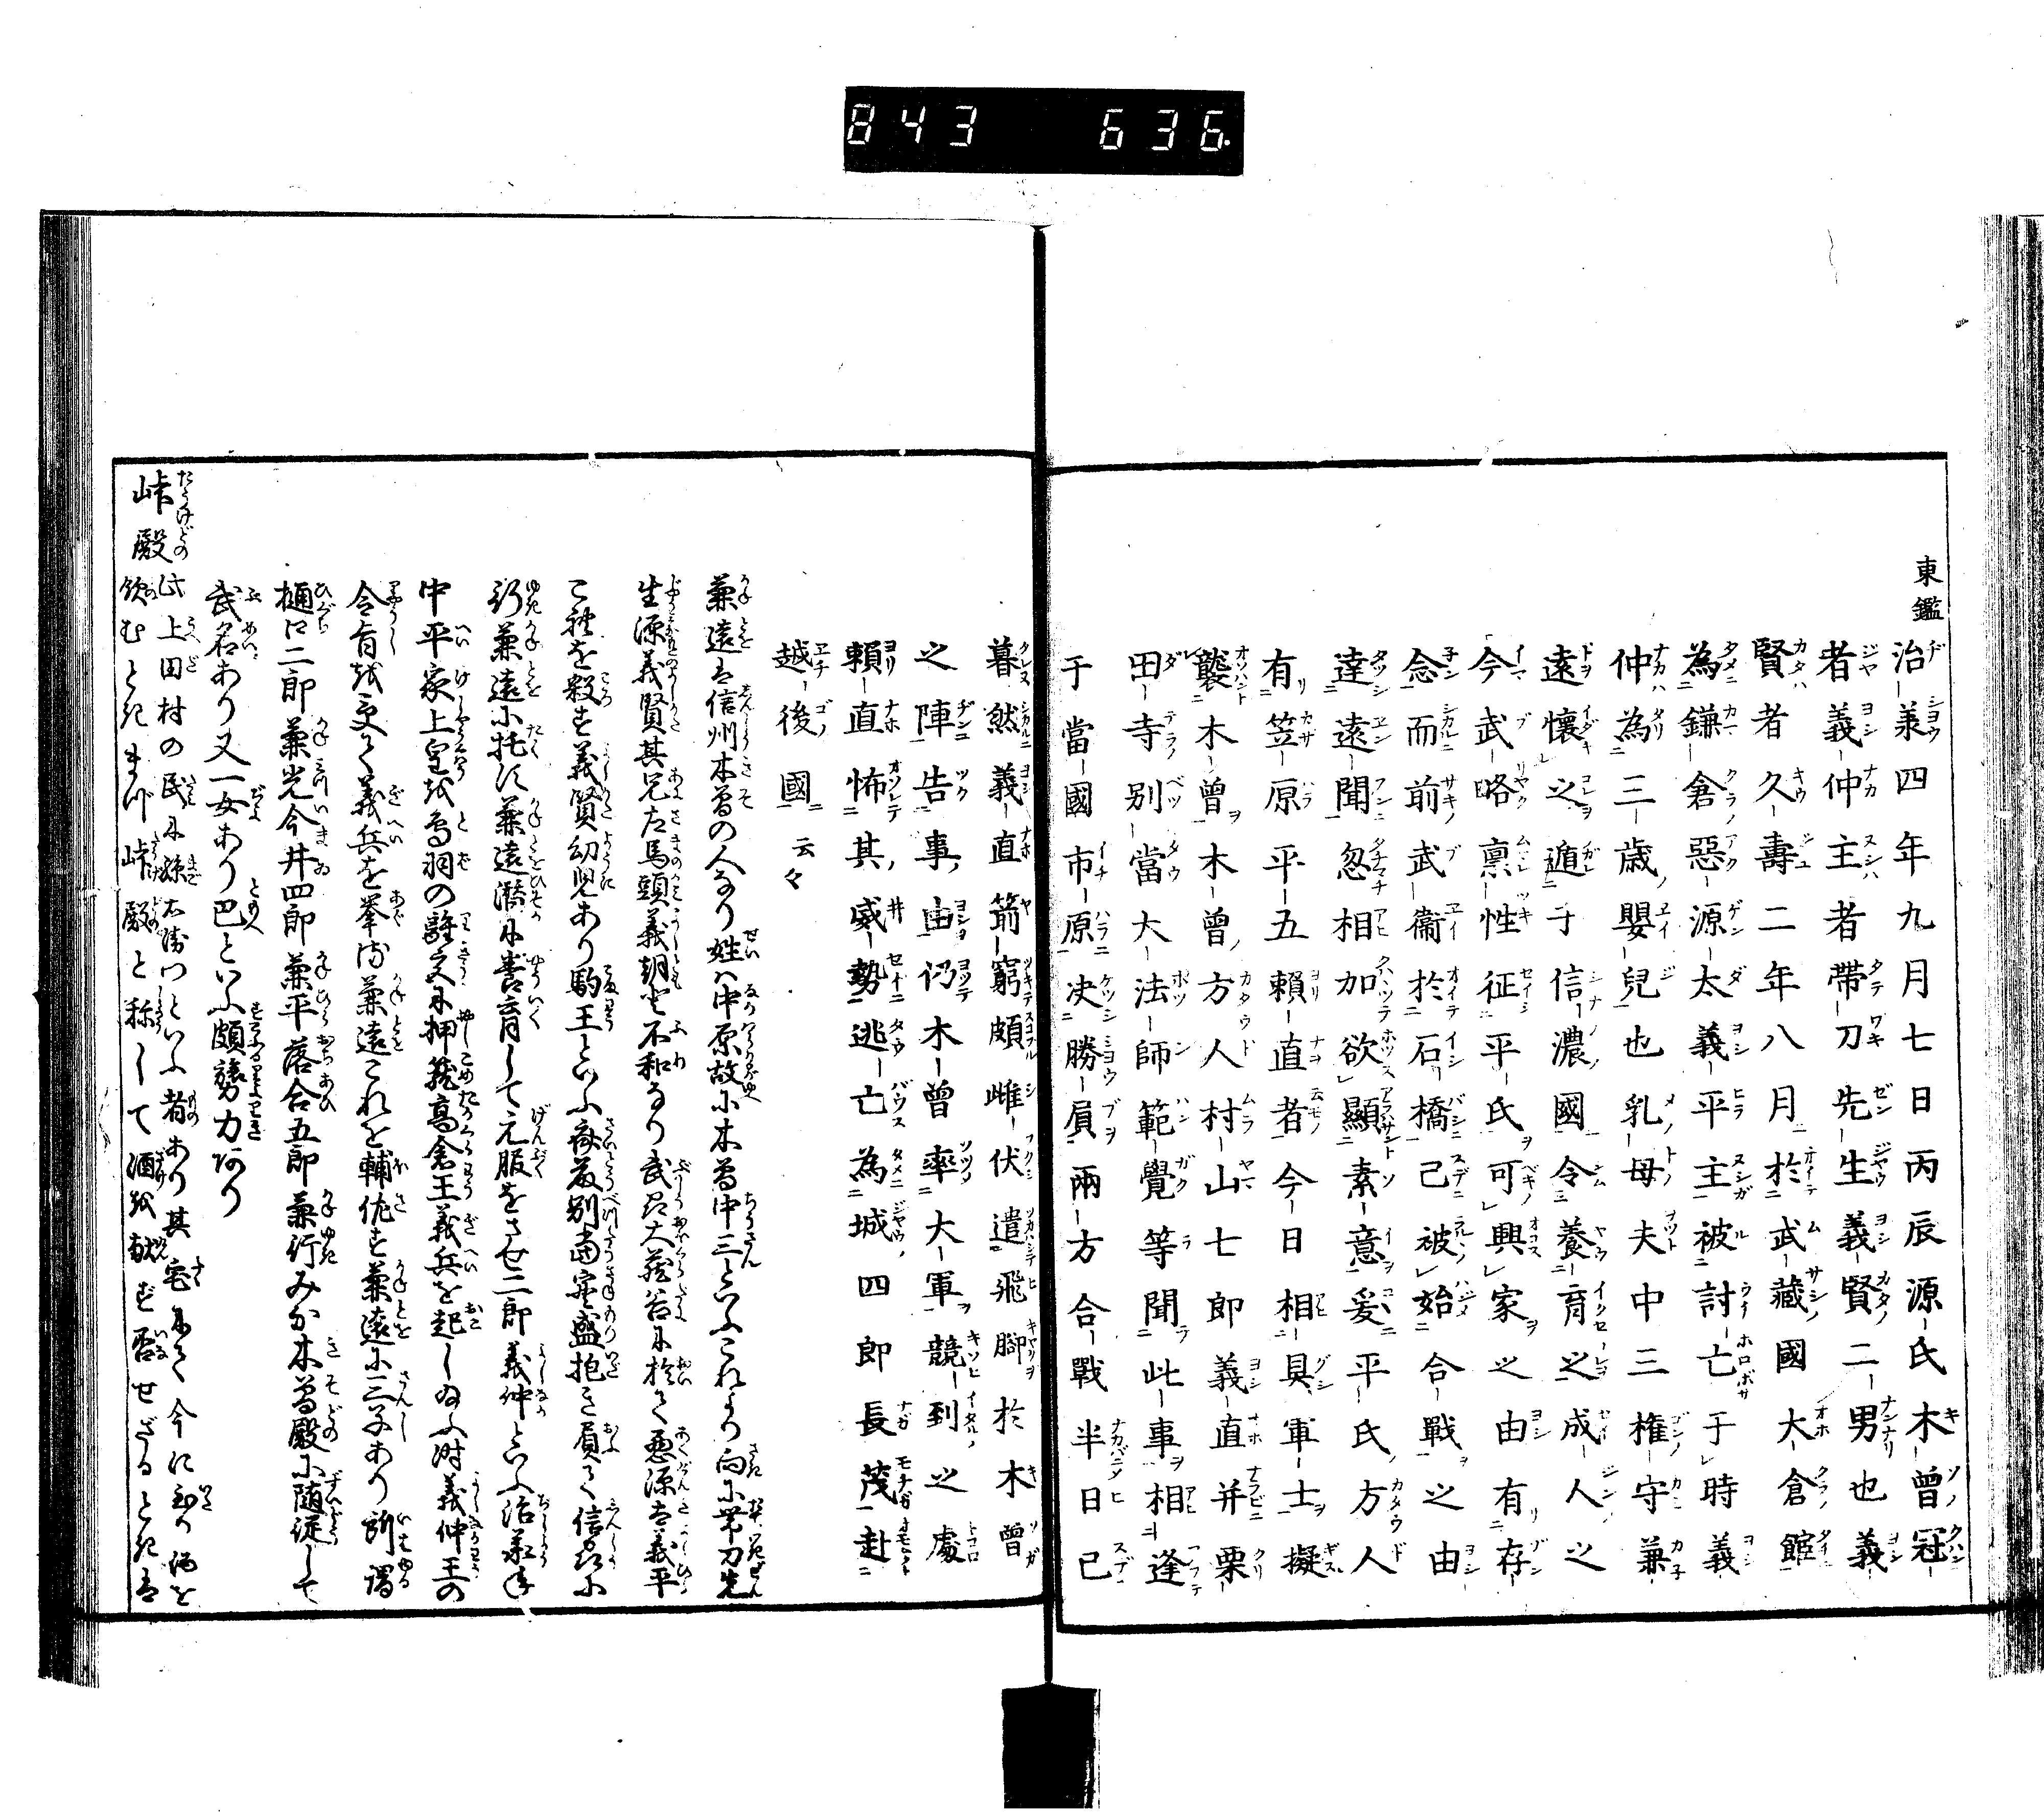 843 636.
東鑑
治承四年九月七日丙辰源氏木曾冠
者義仲主者帶刀先生義賢二男也義
賢者久壽二年八月於武藏國大倉館
為鎌倉惡源太義平主被討亡于時義
仲為三歳嬰兒也乳母夫中三権守兼
遠懷之遁于信濃國令養育之成人之
今武略稟性征平氏可興家之由有存
念而前武衞於石橋已被始合戰之由
達遠聞忽相加欲顯素意爰平氏方人
有笠原平五頼直者今日相具軍士擬
襲木曾木曾方人村山七郎義直并栗
田寺別當大法師範覺等聞此事相逢
于當國市原决勝負兩方合戰半日已
暮然義直箭窮頗雌伏遣飛脚於木曾
之陣告事由仍木曾率大軍競到之處
頼直怖其威勢逃亡為城四郎長茂赴
越後國云々
兼遠は信州木曽の人なり姓は中原故に木曽中三といふこれより向に帯刀先
生源義賢其兄左馬頭義朝と不和なり武州大藏谷に於て悪源太義平
これを殺す義賢幼児あり駒王といふ斎藤別当実盛抱き負て信州に
行兼遠に托す兼遠潜に養育して元服をさせ二郎義仲といふ治承年
中平家上皇を鳥羽の離宮に押籠高倉王義兵を起し給ふ時義仲王の
令旨を受て義兵を挙る兼遠これを輔佐す兼遠に三子あり所謂
樋口二郎兼光今井四郎兼平落合五郎兼行みな木曽殿に随従して
武名あり又一女あり巴といふ頗膂力あり
峠殿 此上田村の民に孫右衛門といふ者あり其宅にて今に至り酒を
飲むときまづ峠殿と称して酒を献ず否せざるときは